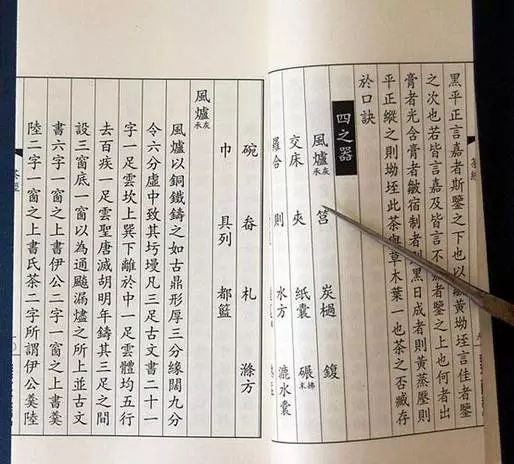 茶經
黑平正言嘉者斯鑒之下也以黃坳垤言佳者鑒
之次也若皆言嘉及皆言不者鑒之上也何者出
膏者光含膏者皺宿制者則黑日成者則黃蒸壓則
平正縱之則坳垤此茶與草木葉一也茶之否臧存
於口訣
四之器
風爐承灰 筥 炭檛 鍑
交床 夾 紙囊 碾拂末
羅合 則 水方 漉水囊
碗 畚 札 滌方
巾 具列 都籃
風爐承灰
風爐以銅鐵鑄之如古鼎形厚三分緣闊九分
令六分虛中致其圬墁凡三足古文書二十一
字一足雲坎上巽下離於中一足雲體均五行
去百疾一足雲聖唐滅胡明年鑄其三足之間
設三窗底一窗以為通飈漏燼之所上並古文
書六字一窗之上書伊公二字一窗之上書羹
陸二字一窗之上書氏茶二字所謂伊公羹陸
茶經